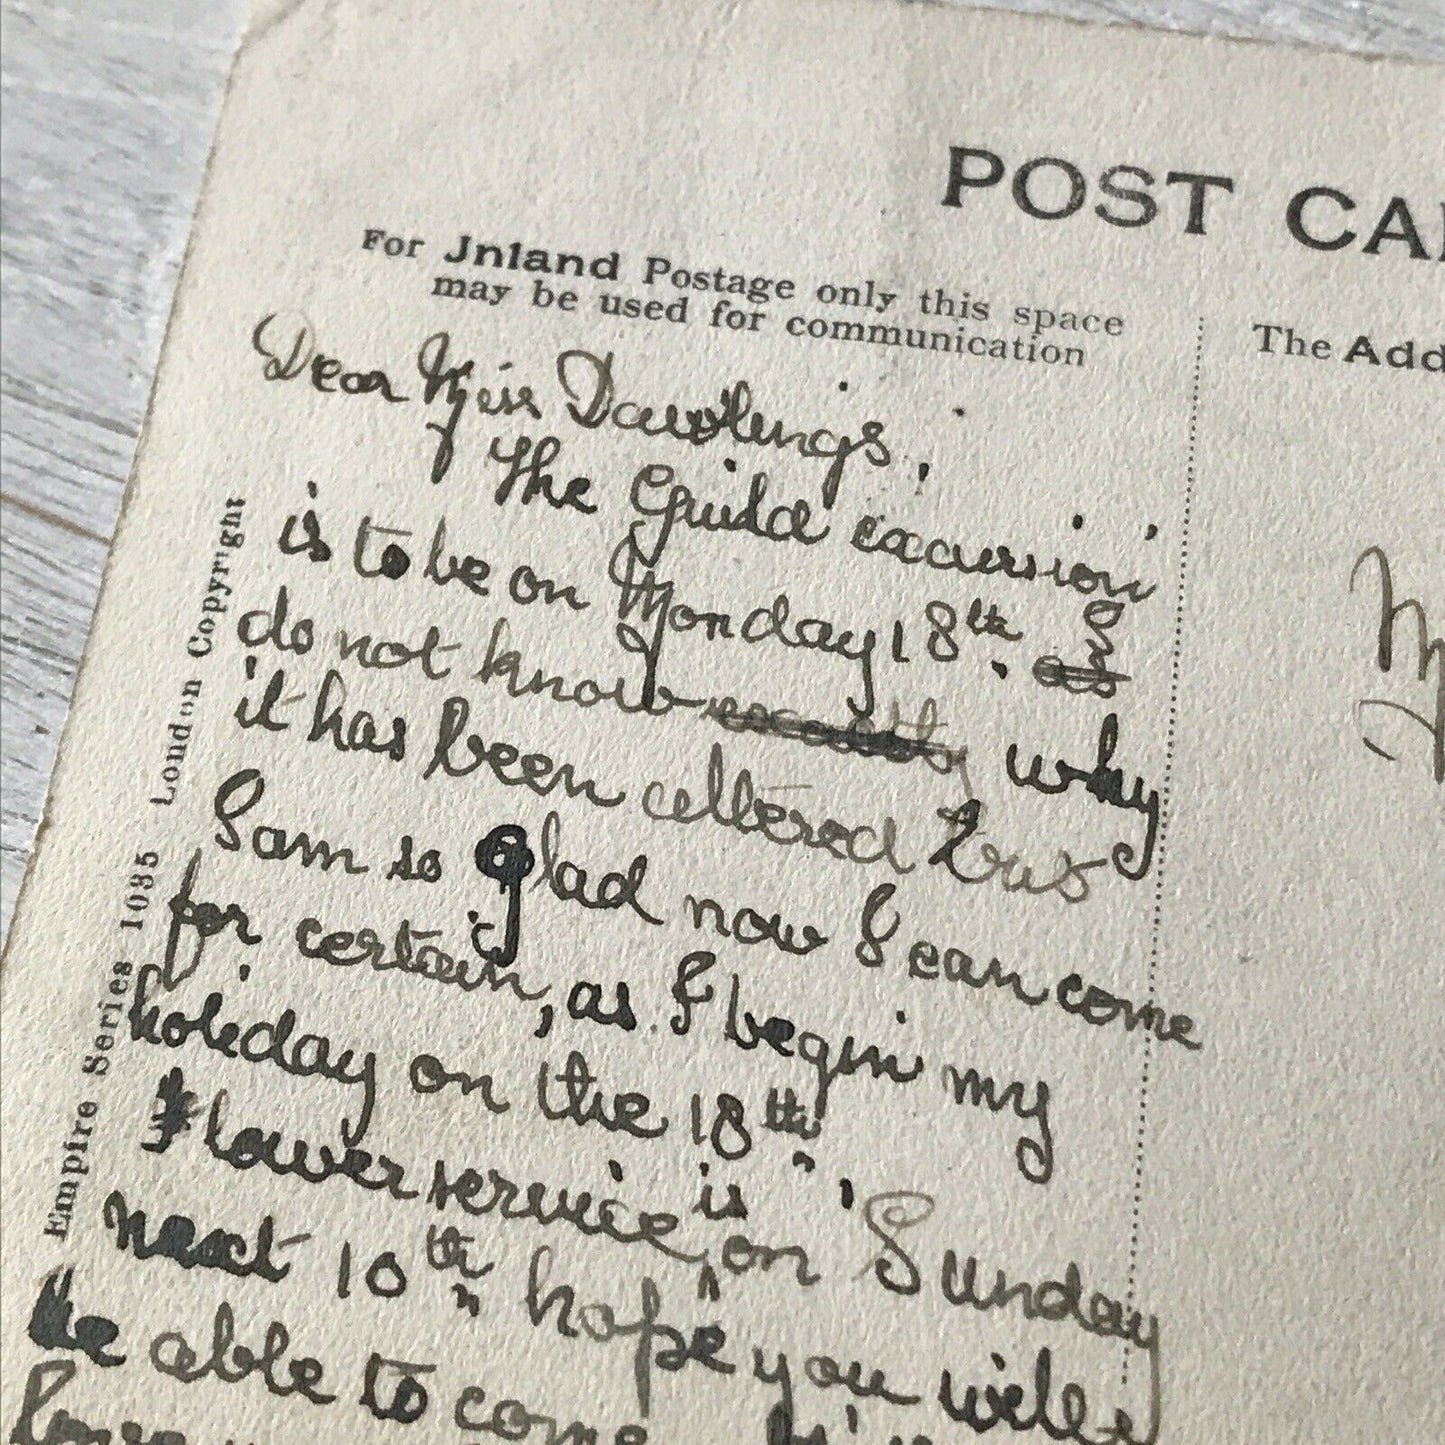 POST CA
For Inland Postage only this space
may be used for communication
The Add
Dear Miss Dawlings,
The Guild excursion
is to be on Monday 18th. as I
do not know exactly why
it has been altered but
I am so glad now I can come
for certain, as I begin my
holiday on the 18th.
Flower service is on Sunday
next 10th hope you will
be able to come
Empire Series 1035 London Copyright